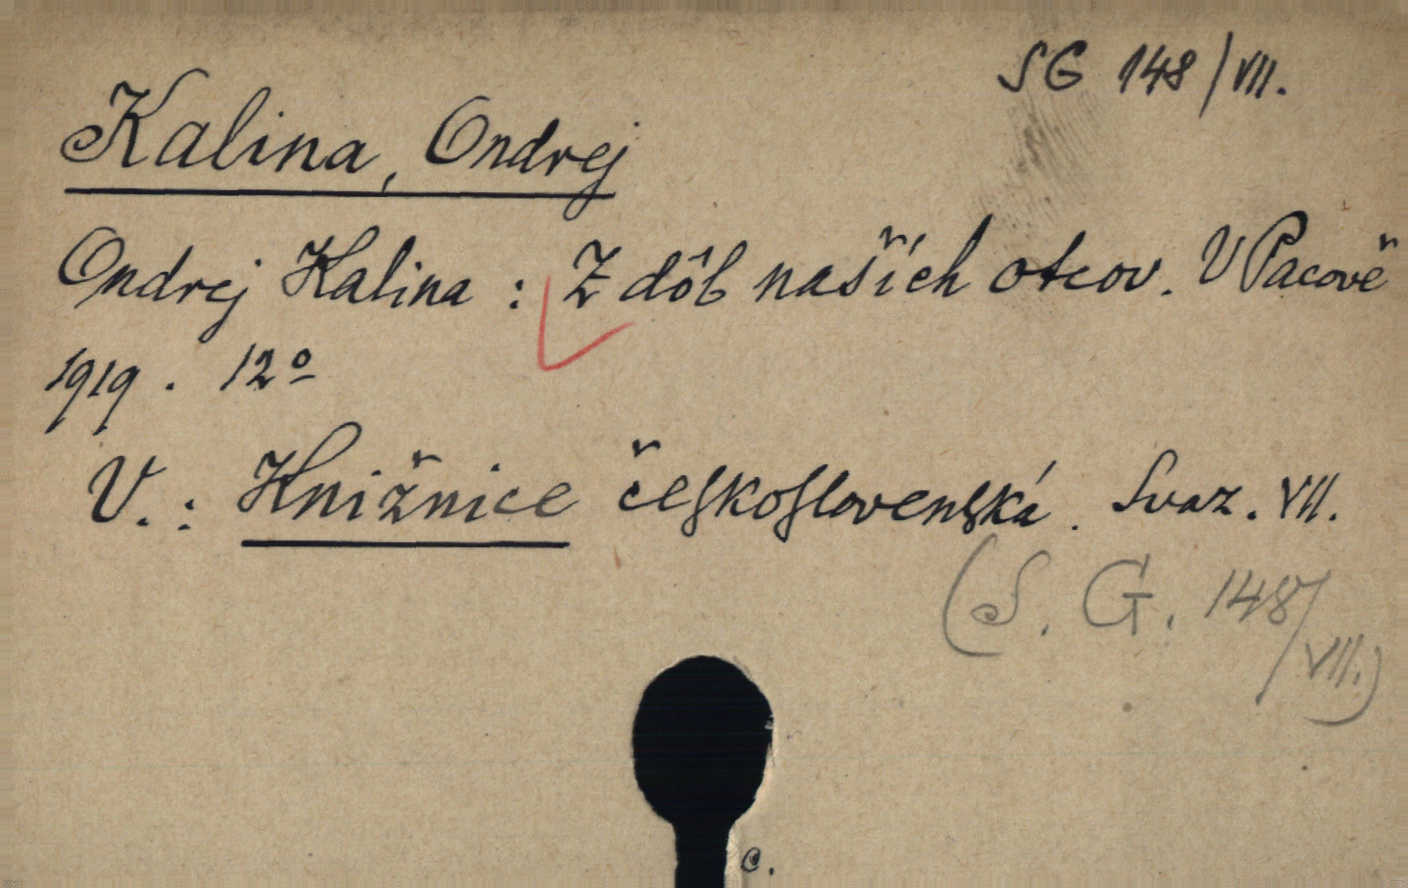 SG 148/VII.
Kalina, Ondrej
Ondrej Kalina : Z dôb našich otcov. V Pacově
1919. 12º
V.: Knižnice československá. Svaz. VII.
(S. G. 148/
VII.)
c.